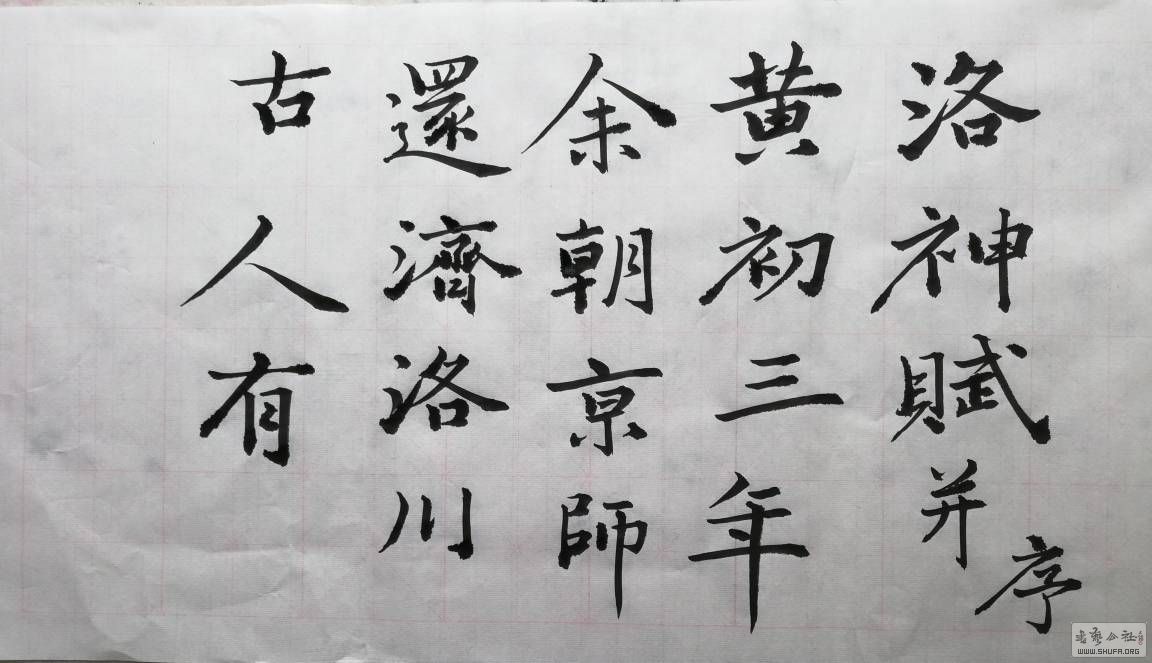 洛神賦并序
黄初三年
余朝京師
還濟洛川
古人有
書藝公社
WWW.SHUFA.ORG